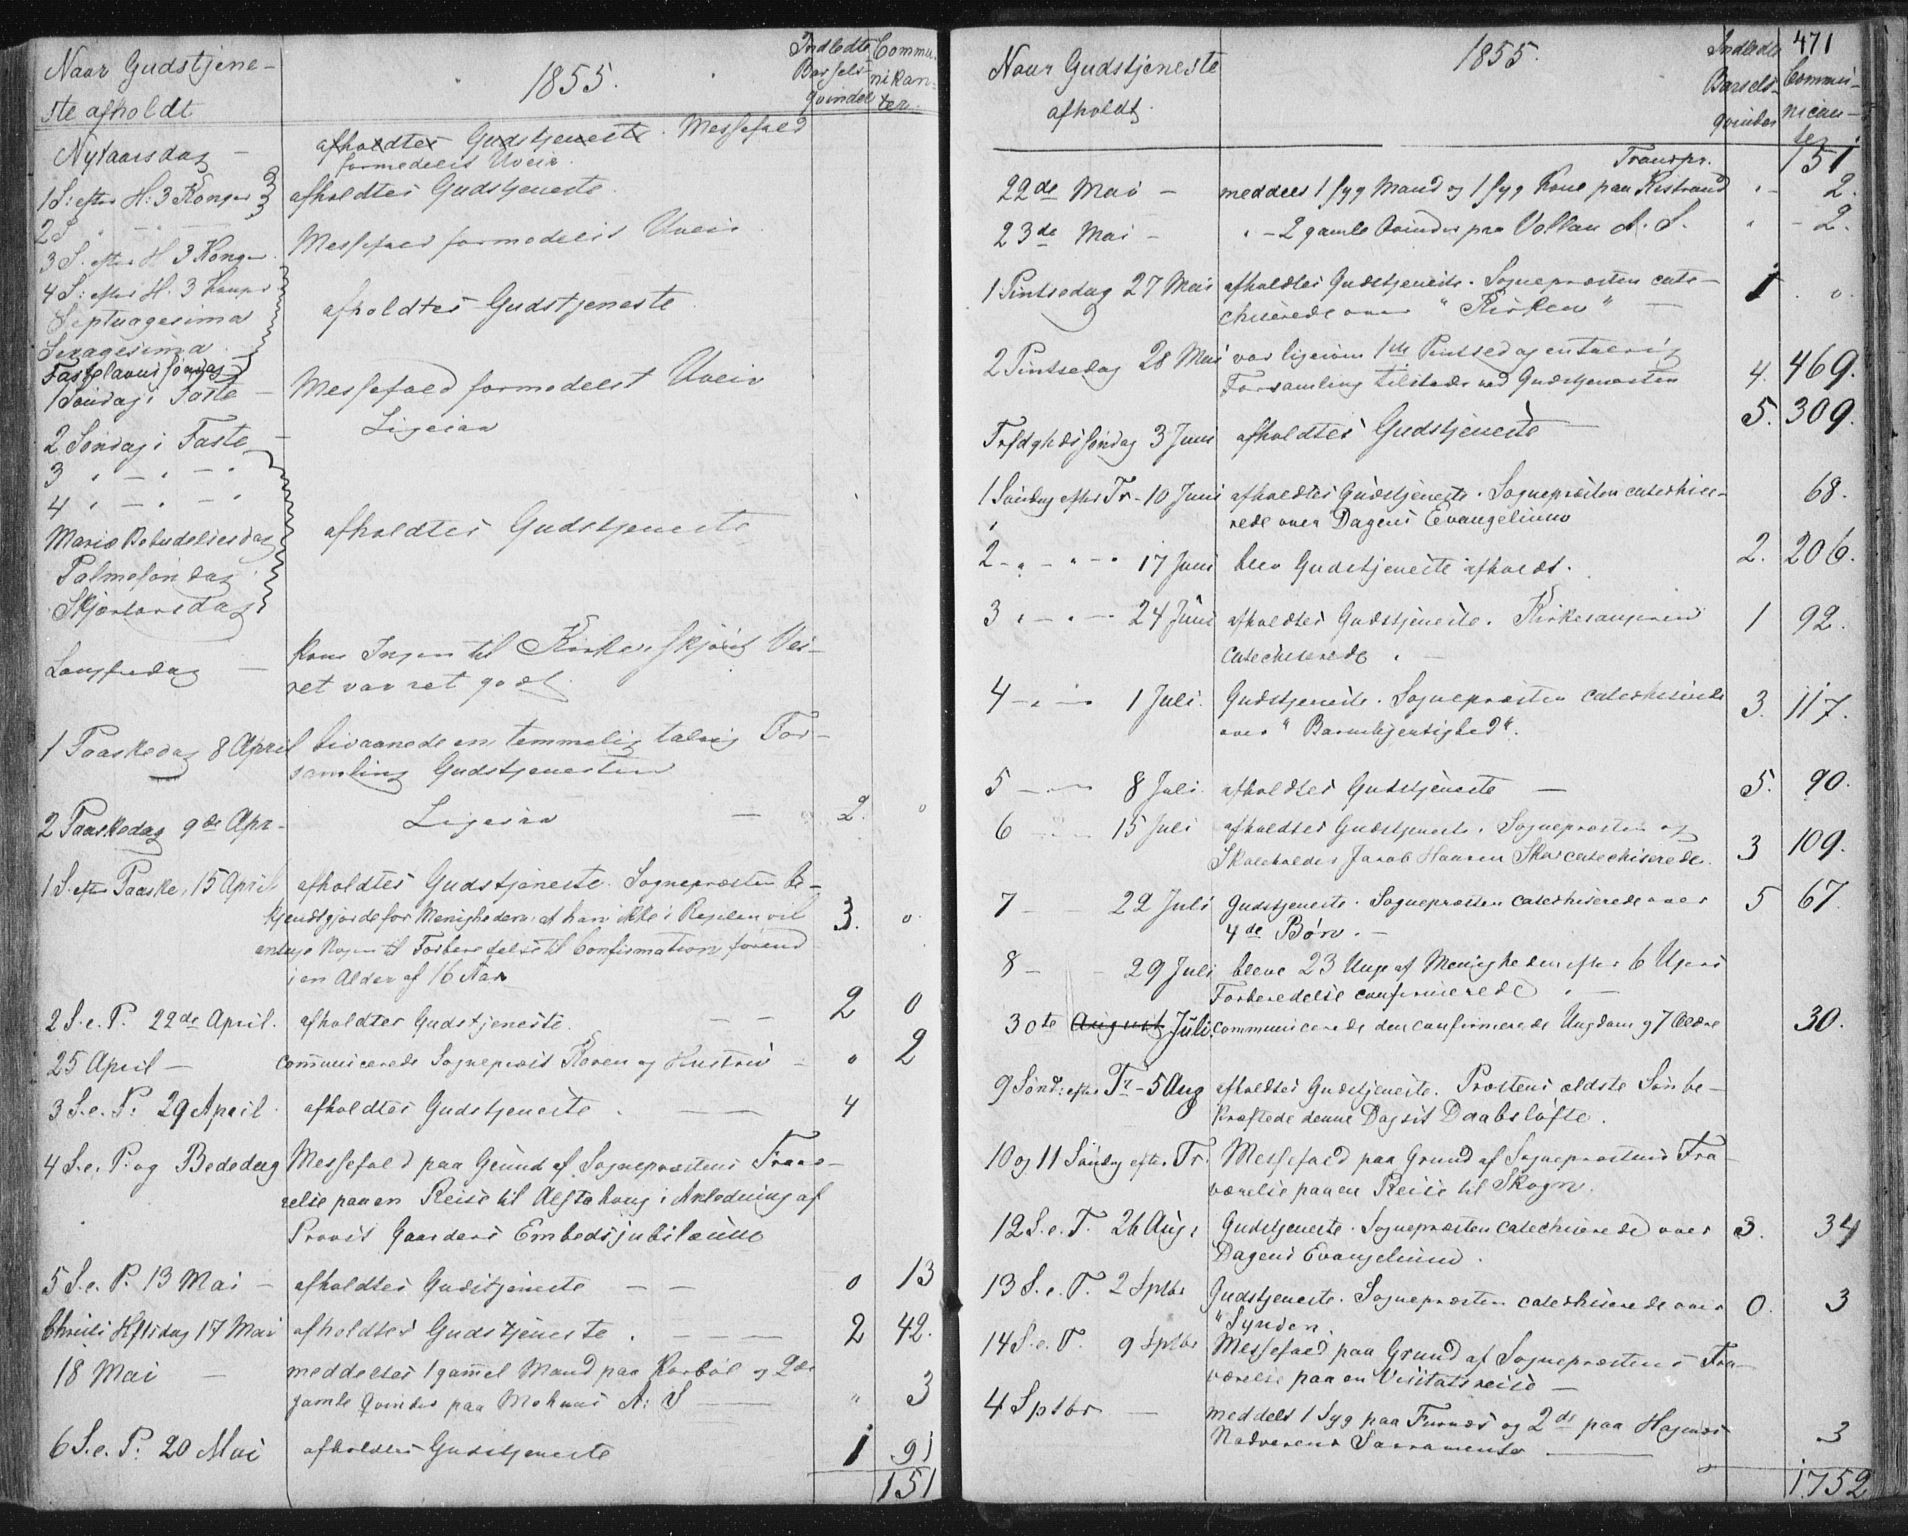 Naar Gudstjene-
ste afholdt
1855.
Indledte
Barsels-
qvinder
Commu-
nikan-
ter.
Nytaarsdag – afholdtes Gudstjeneste. Messefald
formedelst Uveir.
1 S: efter H: 3 Konger afholdtes Gudstjeneste.
2 S " – " –
3 S. efter H 3 Konger. Messefald formedelst Uveir.
4 S: efter H. 3 Konger
Septuagesima afholdtes Gudstjeneste.
Sexagesima.
Fastelavns søndag
1 Søndag i Faste – Messefald formedelst Uveir
2 Søndag i Faste – Ligesaa
3 " – " – "
4 " – " – "
Mariæ Bebudelsesdag afholdtes Gudstjeneste
Palmesøndag
Skjærtorsdag
Langfredag – kom Ingen til Kirke, skjønt Vei-
ret var ret godt.
1 Paaskedag 8 April bivaanede en temmelig talrig For-
samling Gudstjenesten
2 Paaskedag 9de Apr. Ligesaa – 2. "
1 S. efter Paaske, 15 April afholdtes Gudstjeneste. Sognepræsten be-
kjendtgjorde for Menigheden: at han ikke i Regelen vil 3. 0.
antage Nogen til Forberedelse til Confirmation førend
i en Alder af 16 Aar
2 S. e. P. 22de April. afholdtes Gudstjeneste. – – 2 0
25 April – communicerede Sognepræst Koren og Hustru – 0 2
3 S. e. P. 29 April. afholdtes Gudstjeneste. – – 4
4 S. e. P. og Bededag Messefald paa Grund af Sognepræstens Fravæ-
relse paa en Reise til Alstahoug i Anledning af
Provst Gaarders Embedsjubilæum
5 S. e. P. 13 Mai – afholdtes Gudstjeneste – – 0 13
Christi Hftsdag 17 Mai afholdtes Gudstjeneste. – – – 2 42.
18 Mai – meddeltes 1 gammel Mand paa Korbøl og 2de
gamle Qvinder paa Mohuus A: S – " 3
6 S. e. P. 20 Mai afholdtes Gudstjeneste 1 91
151
Naar Gudstjeneste
afholdt.
1855.
Indledte
Barsels-
qvinder
471
Commu-
nican-
ter
Transpr. 151
22de Mai – meddelt 1 syg Mand og 1 syg Kone paa Kistrand " – 2.
23de Mai – " – 2 gamle Qvinder paa Vollan A. S. " – 2.
1 Pintsedag 27 Mai afholdtes Gudstjeneste. Sognepræsten cate- 1 . 0.
chiserede over "Kirken" –
2 Pintsedag 28 Mai var ligesom 1ste Pintsedag en talrig
Forsamling tilstede ved Gudstjenesten 4. 469.
Trfdghds søndag 3 Juni afholdtes Gudstjeneste – 5. 309.
1 Søndag efter Tr – 10 Juni afholdtes Gudstjeneste. Sognepræsten catechise- 68.
rede over Dagens Evangelium
2 – " – " – 17 Juni blev Gudstjeneste afholdt. 2. 206.
3 " – " – 24 Juni afholdtes Gudstjeneste. Kirkesangeren 1 92.
catechiserede. –
4 – " – 1 Juli. Gudstjeneste. Sognepræsten catechiserede 3. 117.
over "Barmhjertighed".
5 – – 8 Juli. afholdtes Gudstjeneste – 5. 90.
6 – – 15 Juli afholdtes Gudstjeneste. Sognepræsten og
Skoleholder Jacob Hansen Skar catechiserede. 3 109.
7 – – 22 Juli Gudstjeneste. Sognepræsten catechiserede over 5 67.
4de Bøn. –
8 – – 29 Juli bleve 23 Unge af Menigheden efter 6 Ugers
Forberedelse confirmerede. –
30te August Juli. communicerede den confirmerede Ungdom og 7 Ældre 30.
9 Sønd: efter Tr – 5 Aug afholdtes Gudstjeneste. Præstens ældste Søn be-
kræftede denne Dag sit Daabsløfte.
10 og 11 Søndag efter Tr. Messefald paa Grund af Sognepræstens Fra-
værelse paa en Reise til Skogn.
12 S. e. T. 26 Aug: Gudstjeneste. Sognepræsten catechiserede over 3. 34
Dagens Evangelium.
13 S. e. T. 2 Sptbr Gudstjeneste. Sognepræsten catechiserede over 0. 3
"Synden.
14 S. e. T. 9 Sptbr Messefald paa Grund af Sognepræstens Fra-
værelse paa en Visitatsreise –
4 Sptbr – meddelt 1 Syg paa Furnes og 2de paa Hagenes
Nadverens Sacramente – 3
1752